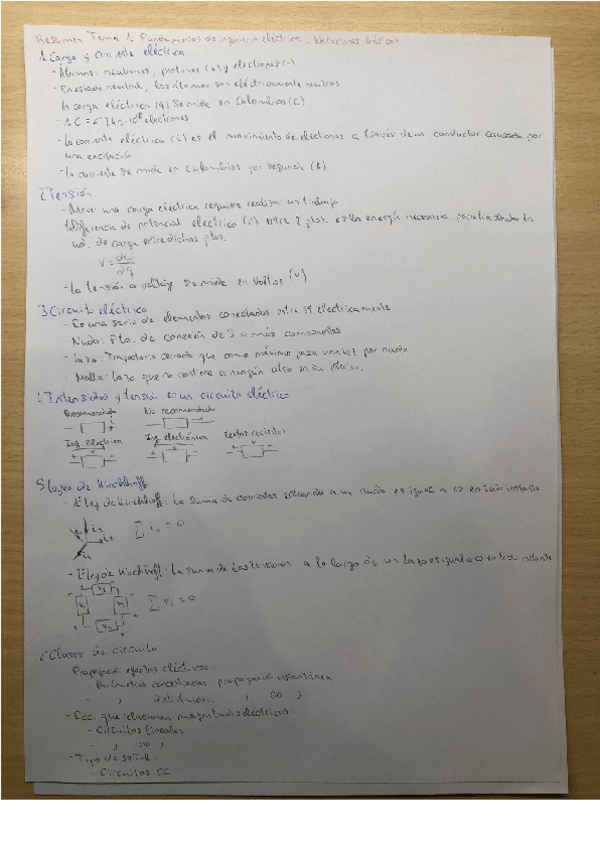 Resumen Tema 1 Fundamentos de ingeniería eléctrica. Nociones básicas
1. Carga y corriente eléctrica
- Átomos: neutrones, protones (+) y electrones (-)
- En estado neutral, los átomos son eléctricamente neutros
- La carga eléctrica (q) se mide en Culombios (C)
- 1 C = electrones
- La corriente eléctrica (i) es el movimiento de electrones a través de un conductor causada por
una excitación
- La corriente se mide en Culombios por segundo (A)
2. Tensión
- Mover una carga eléctrica requiere realizar un trabajo
- Diferencia de potencial eléctrico (v) entre 2 ptos. es la energía necesaria para trasladar la
ud. de carga entre dichos ptos.
v = dw/dq
- La tensión o voltaje se mide en Voltios (V)
3. Circuito eléctrico
- Es una serie de elementos conectados entre sí eléctricamente
- Nudo: Pto. de conexión de 3 o más componentes
- Lazo: Trayectoria cerrada que como máximo pasa una vez por nudo
- Malla: Lazo que no contiene a ningún otro en su interior.
4. Intensidad y tensión en un circuito eléctrico
Recomendado No recomendado
Ing. Eléctrica Ing. electrónica
5. Leyes de Kirchhoff
- 1ª ley de Kirchhoff: La suma de corrientes entrando a un nudo es igual a 0 en cada instante
Σ in = 0
- 2ª ley de Kirchhoff: La suma de las tensiones a lo largo de un lazo es igual a 0 en todo instante
Σ vi = 0
6. Clases de circuito
- Propagación efectos eléctricos:
- Parámetros concentrados: propagación instantánea
- " distribuidos: " no "
- Ecc. que relacionan magnitudes eléctricas:
- Circuitos lineales
- " no "
- Tipo de señal:
- Circuitos CC